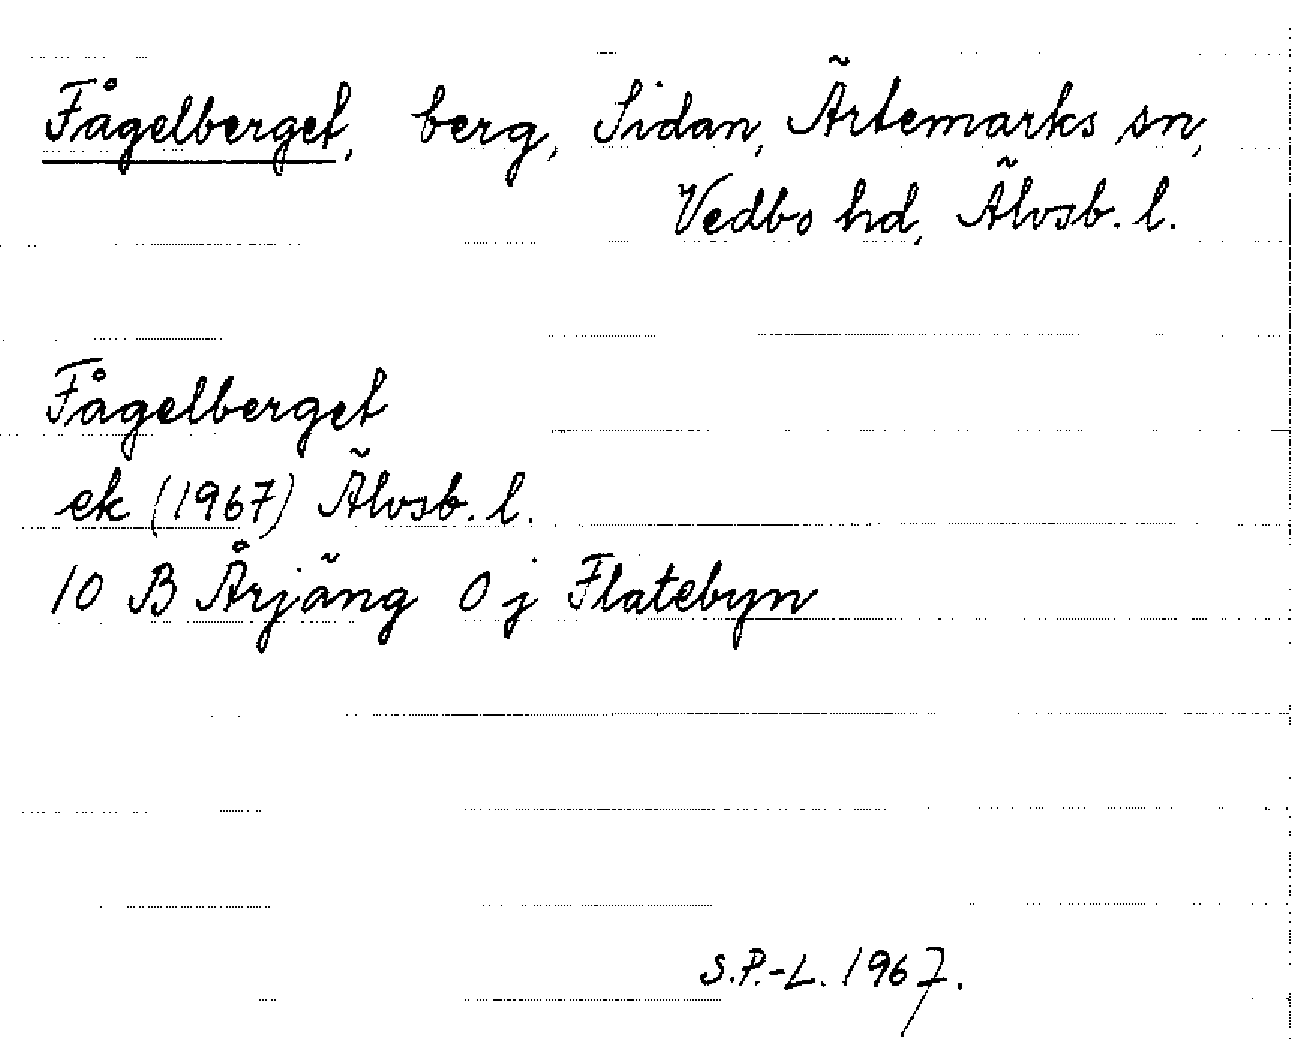 Fågelberget, berg, Sidan, Ärtemarks sn,
Vedbo hd, Älvsb. l.
Fågelberget
ek (1967) Älvsb. l.
10 B Årjäng 0 j Flatebyn
S.P.-L. 1967.